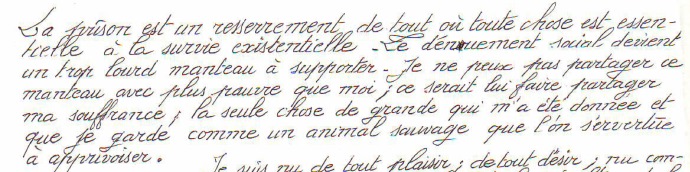 La prison est un resserrement de tout où toute chose est essen-
tielle à la survie existentielle. Le dénuement social devient
un trop lourd manteau à supporter. Je ne peux pas partager ce
manteau avec plus pauvre que moi ; ce serait lui faire partager
ma souffrance ; la seule chose de grande qui m'a été donnée et
que je garde comme un animal sauvage que l'on s'évertue
à apprivoiser.
Je suis nu de tout plaisir ; de tout désir ; nu com-